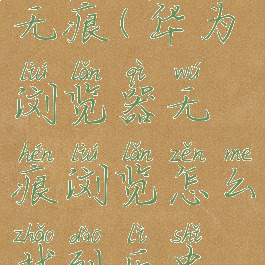 无痕(华为
liú lǎn qì wú
浏览器无
hén liú lǎn zěn me
痕浏览怎么
zhǎo dào lì shǐ
找到历史